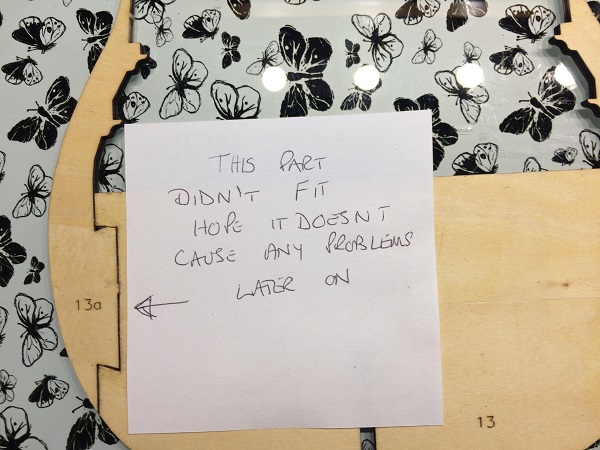 THIS PART
DIDN'T FIT
HOPE IT DOESNT
CAUSE ANY PROBLEMS
LATER ON
13a
13